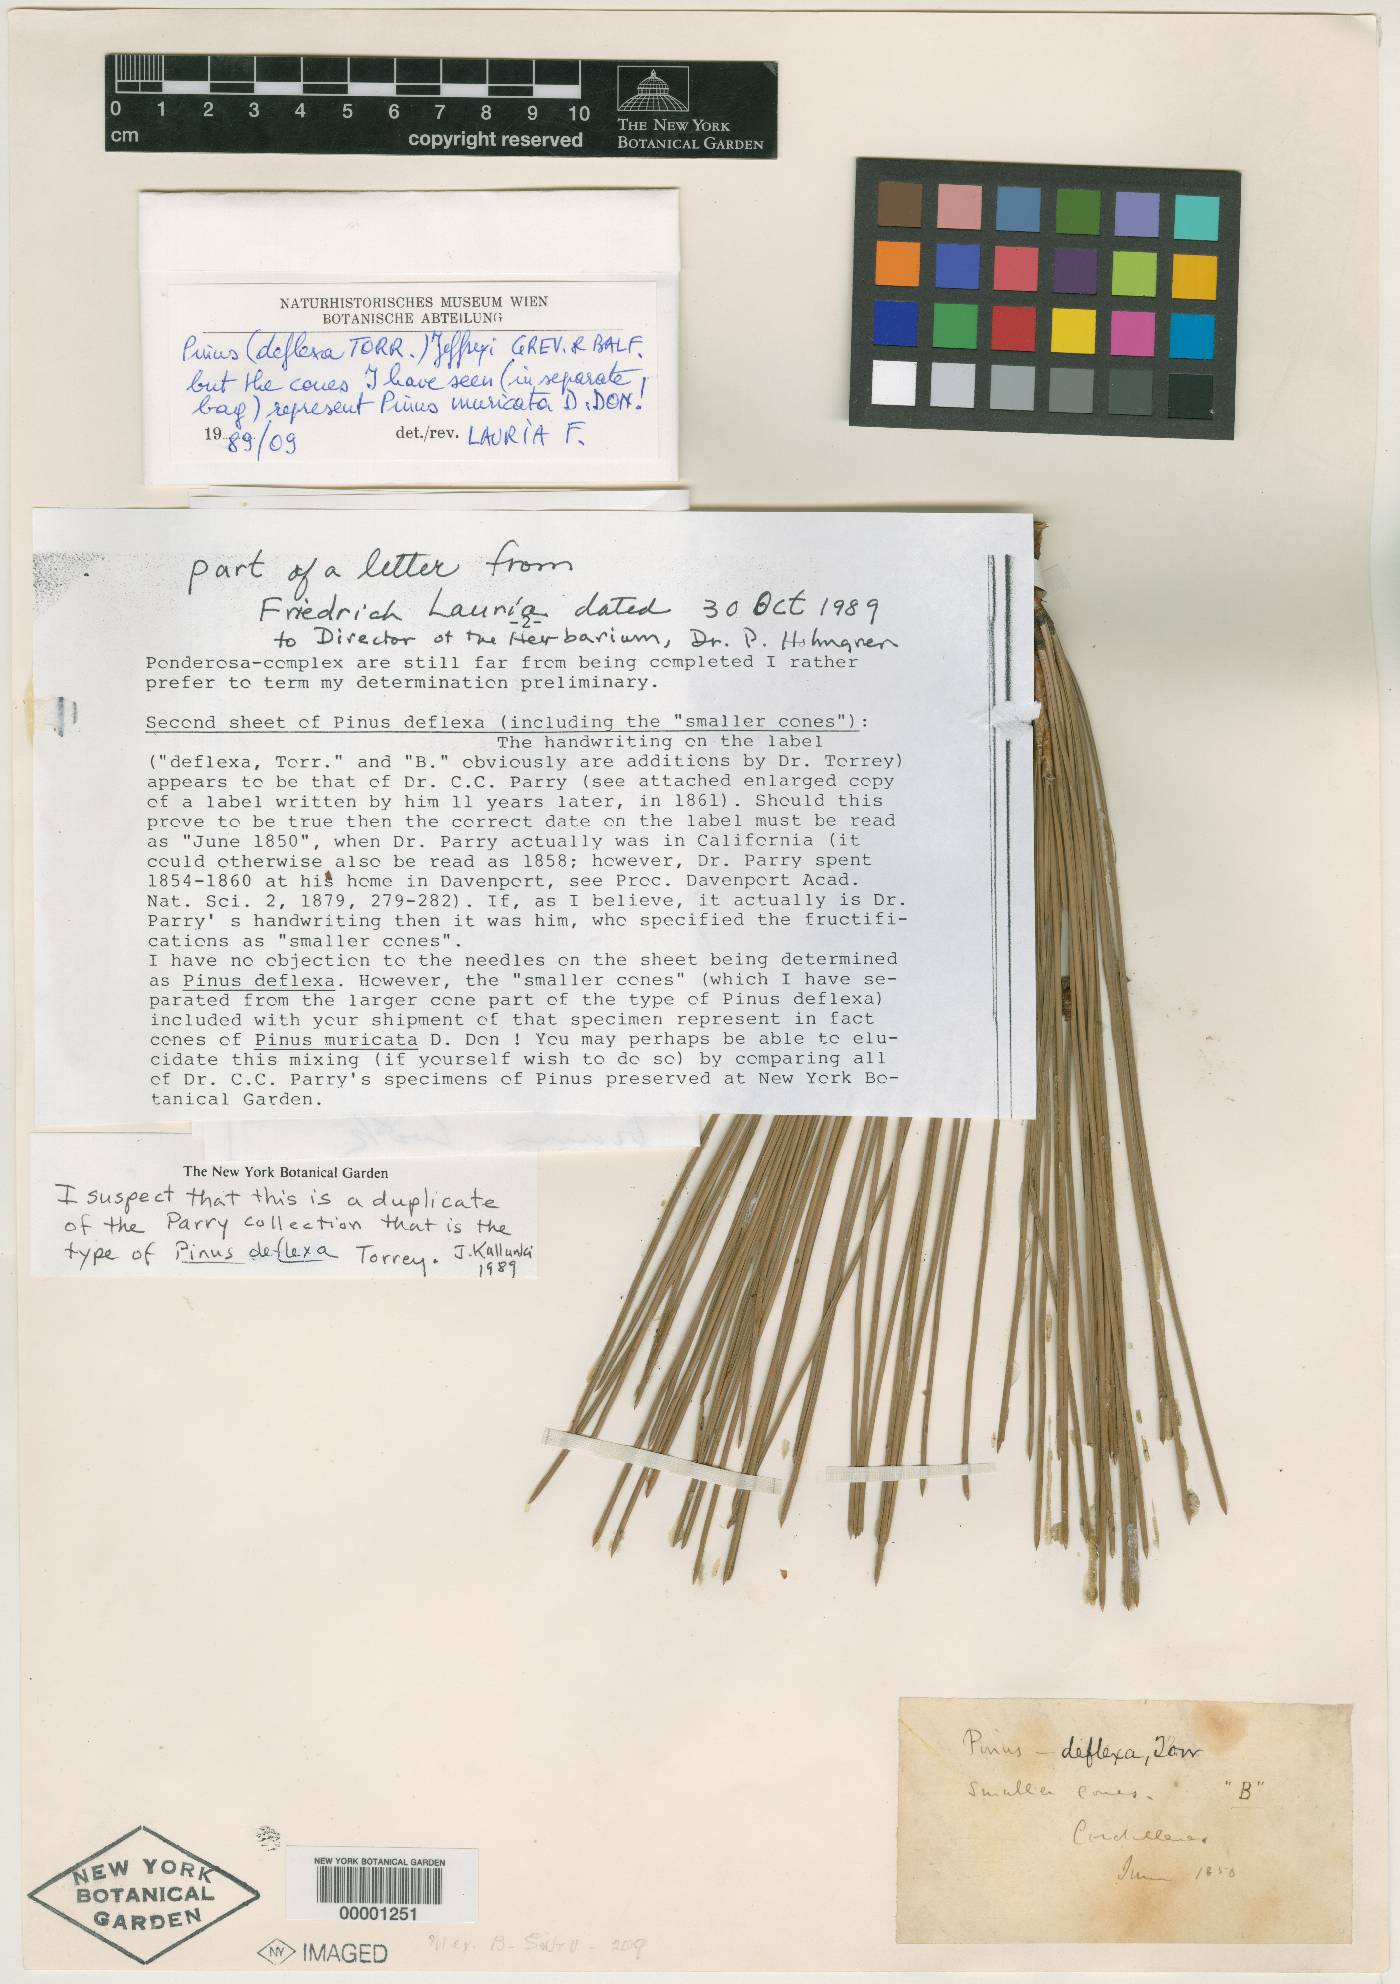 0 1 2 3 4 5 6 7 8 9 10
cm
copyright reserved
THE NEW YORK
BOTANICAL GARDEN
NATURHISTORISCHES MUSEUM WIEN
BOTANISCHE ABTEILUNG
Pinus (deflexa TORR.) Jeffreyi GREV. & BALF.
but the cones I have seen (in separate
bag) represent Pinus muricata D. DON!
1989/09 det./rev. LAURIA F.
part of a letter from
Friedrich Lauria dated 30 Oct 1989
-2-
to Director of the Herbarium, Dr. P. Holmgren
Ponderosa-complex are still far from being completed I rather
prefer to term my determination preliminary.
Second sheet of Pinus deflexa (including the "smaller cones"):
The handwriting on the label
("deflexa, Torr." and "B." obviously are additions by Dr. Torrey)
appears to be that of Dr. C.C. Parry (see attached enlarged copy
of a label written by him 11 years later, in 1861). Should this
prove to be true then the correct date on the label must be read
as "June 1850", when Dr. Parry actually was in California (it
could otherwise also be read as 1858; however, Dr. Parry spent
1854-1860 at his home in Davenport, see Proc. Davenport Acad.
Nat. Sci. 2, 1879, 279-282). If, as I believe, it actually is Dr.
Parry' s handwriting then it was him, who specified the fructifi-
cations as "smaller cones".
I have no objection to the needles on the sheet being determined
as Pinus deflexa. However, the "smaller cones" (which I have se-
parated from the larger cone part of the type of Pinus deflexa)
included with your shipment of that specimen represent in fact
cones of Pinus muricata D. Don ! You may perhaps be able to elu-
cidate this mixing (if yourself wish to do so) by comparing all
of Dr. C.C. Parry's specimens of Pinus preserved at New York Bo-
tanical Garden.
The New York Botanical Garden
I suspect that this is a duplicate
of the Parry collection that is the
type of Pinus deflexa Torrey. J. Kallunki
1989
Pinus - deflexa, Torr
Smaller cones. "B"
Cordilleras
June 1850
NEW YORK
BOTANICAL
GARDEN
NEW YORK BOTANICAL GARDEN
00001251
NY IMAGED